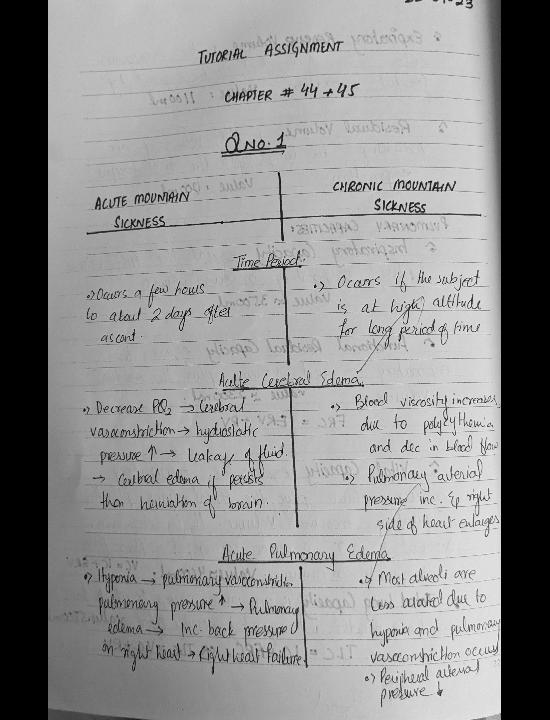 TUTORIAL ASSIGNMENT
CHAPTER # 44 + 45
Q NO. 1
ACUTE MOUNTAIN
SICKNESS
CHRONIC MOUNTAIN
SICKNESS
Time Period:
•) Occurs a few hours
to about 2 days after
ascent.
•) Occurs if the subject
is at high altitude
for long period of time
Acute Cerebral Edema
•) Decrease PO2 → Cerebral
vasoconstriction → hydrostatic
pressure ↑ → Leakage of fluid.
→ cerebral edema if persists
then herniation of brain.
•) Blood viscosity increases
due to polycythemia
and dec in blood flow
•) Pulmonary arterial
pressure inc. & right
side of heart enlarges
Acute Pulmonary Edema
•) Hypoxia → pulmonary vasoconstriction
pulmonary pressure ↑ → Pulmonary
edema → Inc. back pressure
on right heart → Right heart failure
•) Most alveoli are
Less aerated due to
hypoxia and pulmonary
vasoconstriction occurs
•) Peripheral arterial
pressure ↓